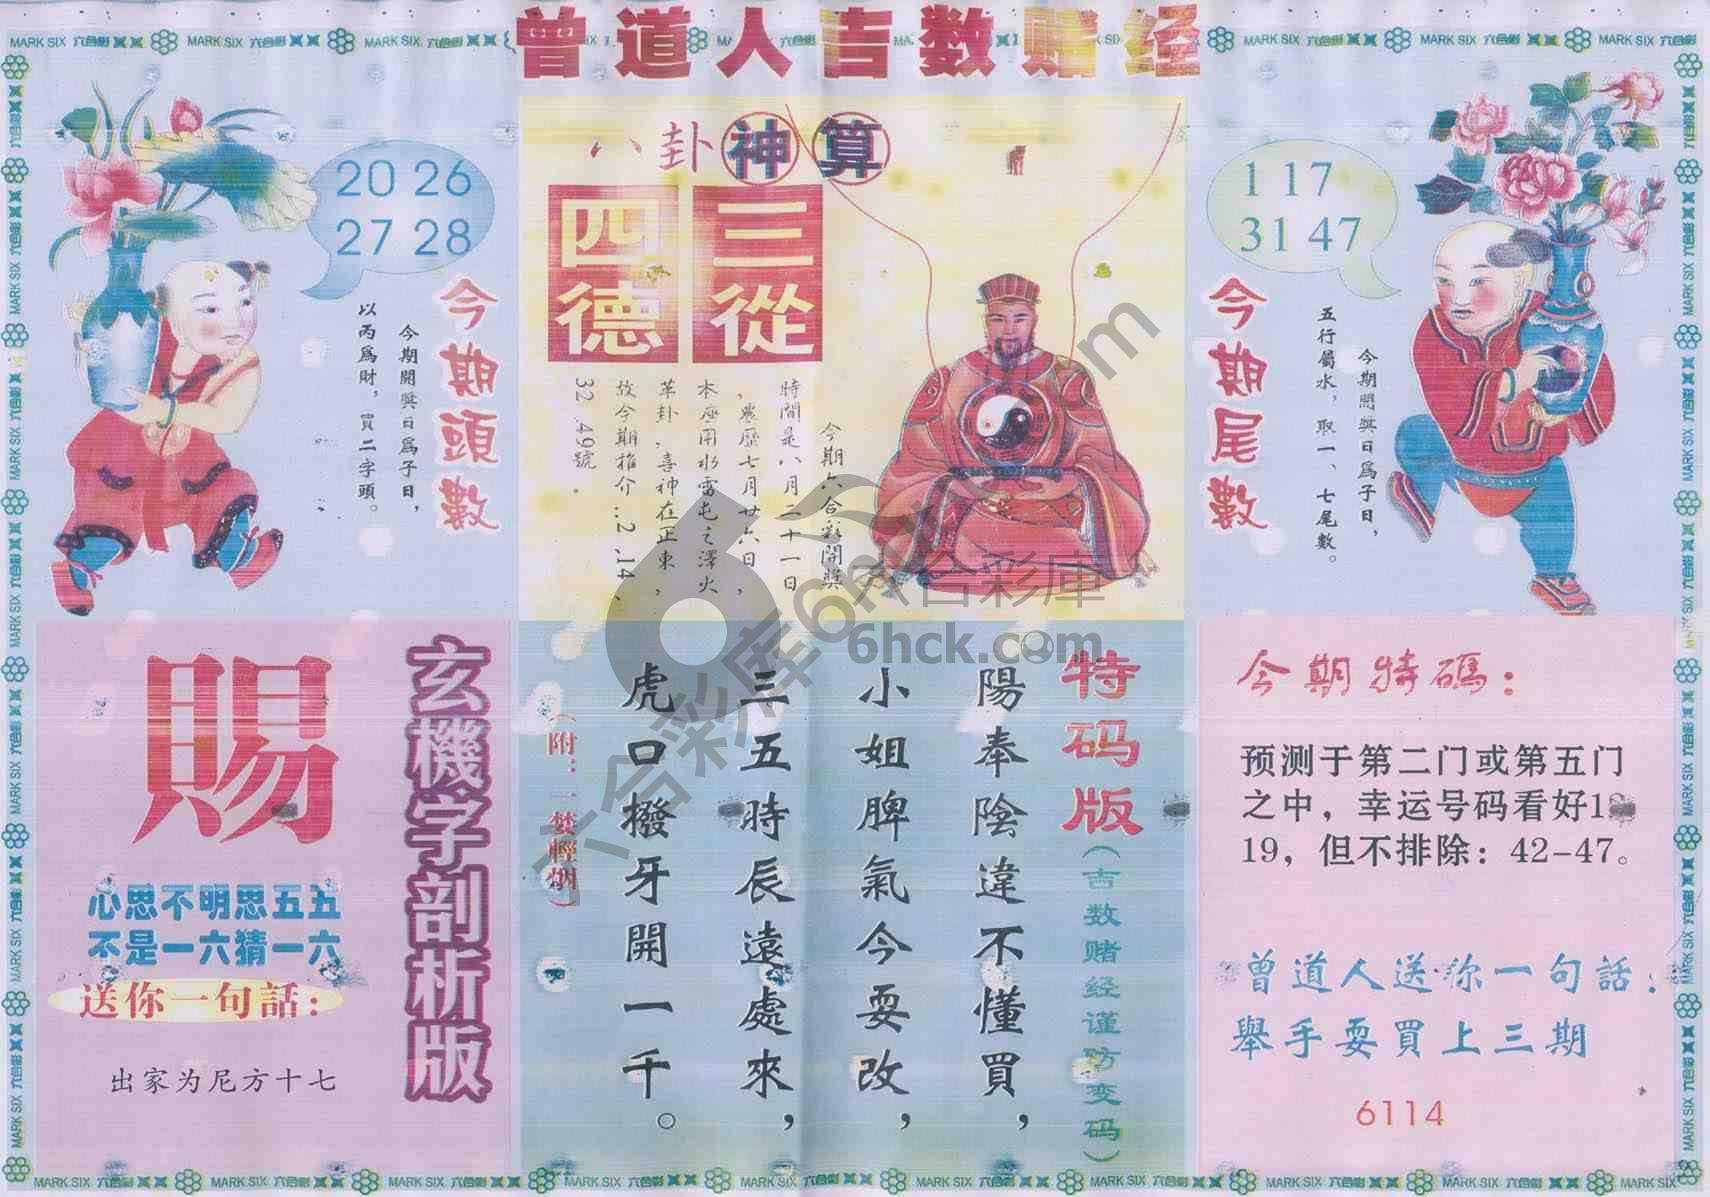 曾道人吉数赌经
20 26
27 28
今期頭數
今期開獎日爲子日，
以丙爲財，買二字頭。
八卦神算
三從
四德
今期六合彩開獎
時間是八月二十一日
，農歷七月廿六日，
本座用水雷屯之澤火
革卦，喜神在正東，
故今期推介：2、14、
32、49號。
1 17
31 47
今期尾數
今期開獎日爲子日，
五行屬水，取一、七尾數。
玄機字剖析版
賜
心思不明思五五
不是一六猜一六
送你一句話：
出家为尼方十七
特码版
（吉数赌经谨防变码）
陽奉陰違不懂買，
小姐脾氣今要改，
三五時辰遠處來，
虎口撥牙開一千。
（附：一焚輕烟）
今期特碼：
预测于第二门或第五门
之中，幸运号码看好1
19，但不排除：42-47。
曾道人送你一句話：
舉手要買上三期
6114
MARK SIX 六合彩
六合彩庫
6hck.com